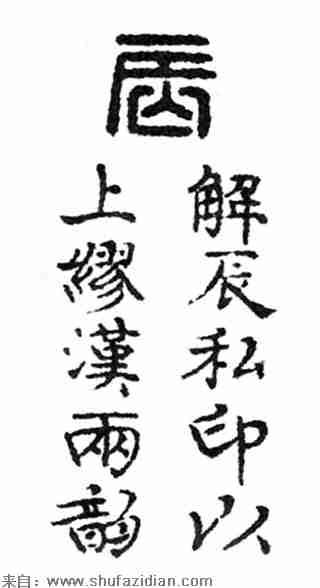 辰
解辰私印以
上繆漢兩韵
来自：www.shufazidian.com